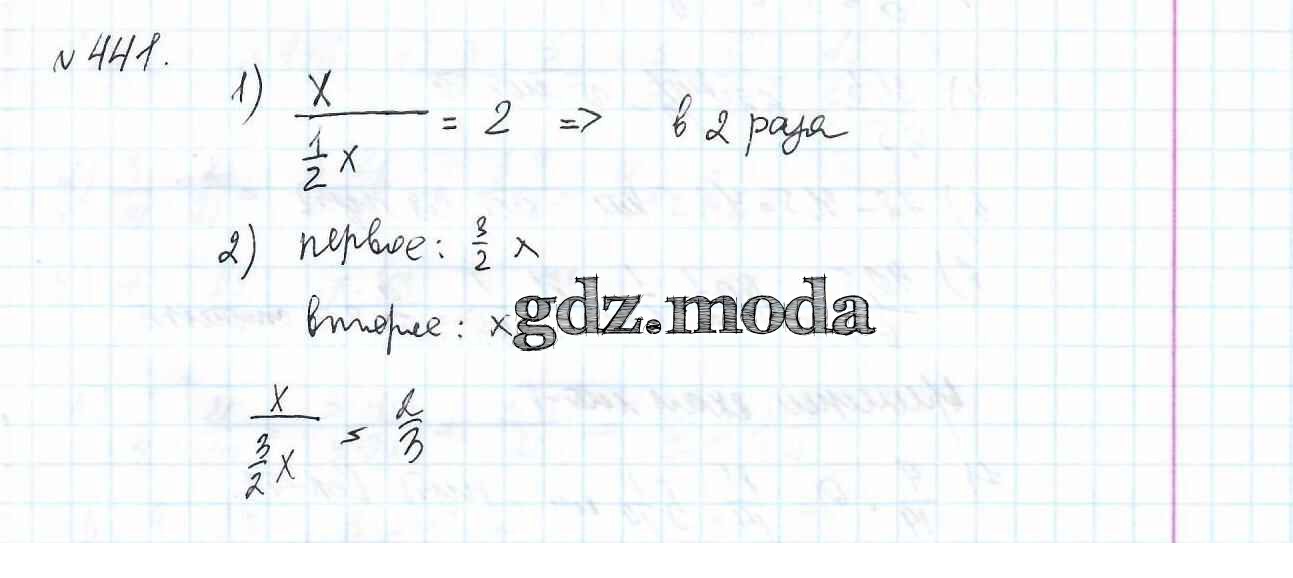 № 441.
1) x / (1/2 x) = 2 => в 2 раза
2) первое: 3/2 x
второе: x
gdz.moda
x / (3/2 x) = 2/3